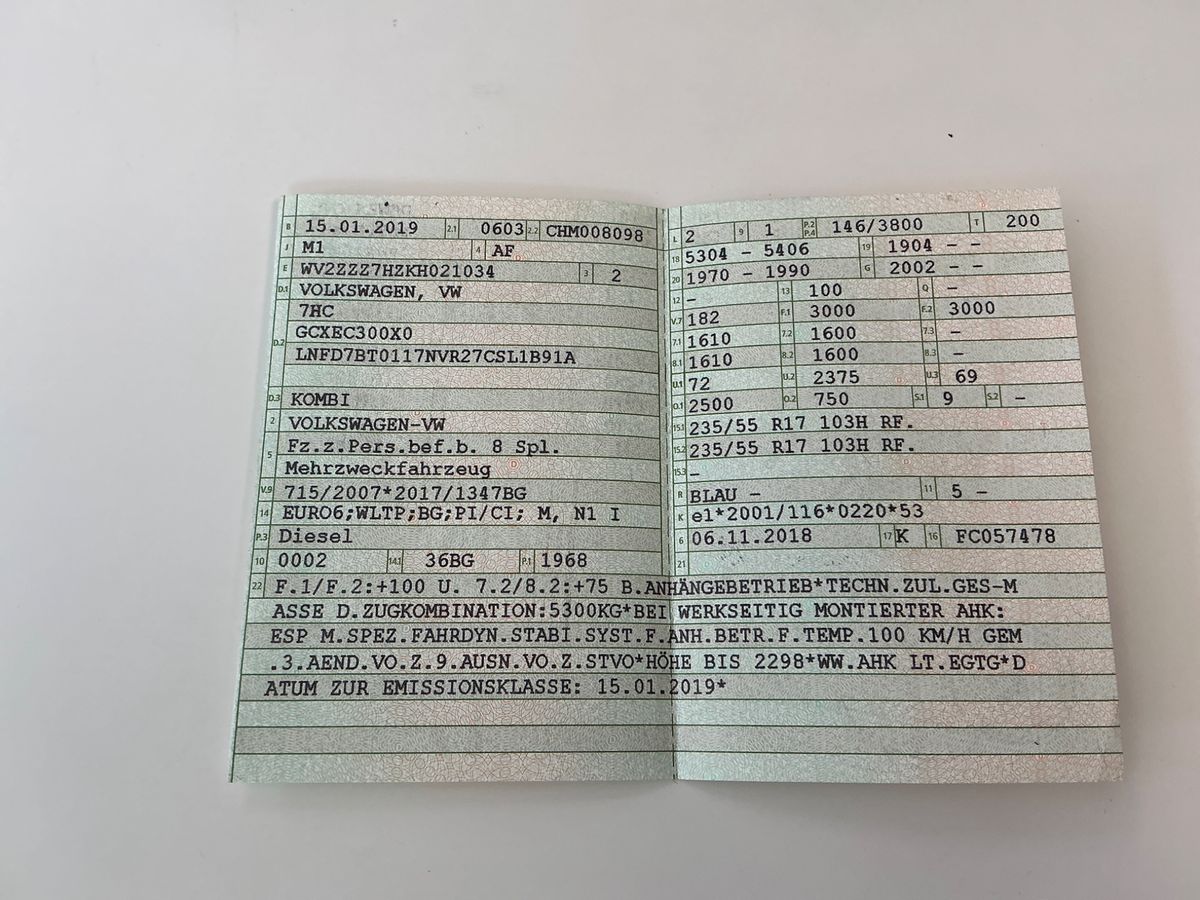 B 15.01.2019 2.1 0603 2.2 CHM008098
J M1 4 AF
E WV2ZZZ7HZKH021034 3 2
D.1 VOLKSWAGEN, VW
7HC
D.2 GCXEC300X0
LNFD7BT0117NVR27CSL1B91A
D.3 KOMBI
2 VOLKSWAGEN-VW
5 Fz.z.Pers.bef.b. 8 Spl.
Mehrzweckfahrzeug
V.9 715/2007*2017/1347BG
14 EURO6;WLTP;BG;PI/CI; M, N1 I
P.3 Diesel
10 0002 14.1 36BG P.1 1968
L 2 9 1 P.2 P.4 146/3800 T 200
18 5304 - 5406 19 1904 - -
20 1970 - 1990 G 2002 - -
12 - 13 100 Q -
V.7 182 F.1 3000 F.2 3000
7.1 1610 7.2 1600 7.3 -
8.1 1610 8.2 1600 8.3 -
U.1 72 U.2 2375 U.3 69
O.1 2500 O.2 750 S.1 9 S.2 -
15.1 235/55 R17 103H RF.
15.2 235/55 R17 103H RF.
15.3 -
R BLAU - 11 5 -
K e1*2001/116*0220*53
6 06.11.2018 17 K 16 FC057478
21
22 F.1/F.2:+100 U. 7.2/8.2:+75 B.ANHÄNGEBETRIEB*TECHN.ZUL.GES-M
ASSE D.ZUGKOMBINATION:5300KG*BEI WERKSEITIG MONTIERTER AHK:
ESP M.SPEZ.FAHRDYN.STABI.SYST.F.ANH.BETR.F.TEMP.100 KM/H GEM
.3.AEND.VO.Z.9.AUSN.VO.Z.STVO*HÖHE BIS 2298*WW.AHK LT.EGTG*D
ATUM ZUR EMISSIONSKLASSE: 15.01.2019*